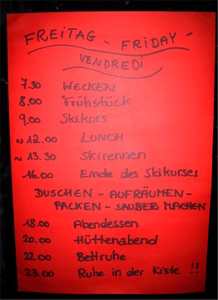 FREITAG - FRIDAY -
VENDREDI
7.30 WECKEN
8.00 Frühstück
9.00 Skikurs
~ 12.00 LUNCH
~ 13.30 SKIRENNEN
16.00 Ende des Skikurses
DUSCHEN - AUFRÄUMEN -
PACKEN - SAUBER MACHEN
18.00 Abendessen
20.00 Hüttenabend
22.00 Bettruhe
23.00 Ruhe in der Kiste !!